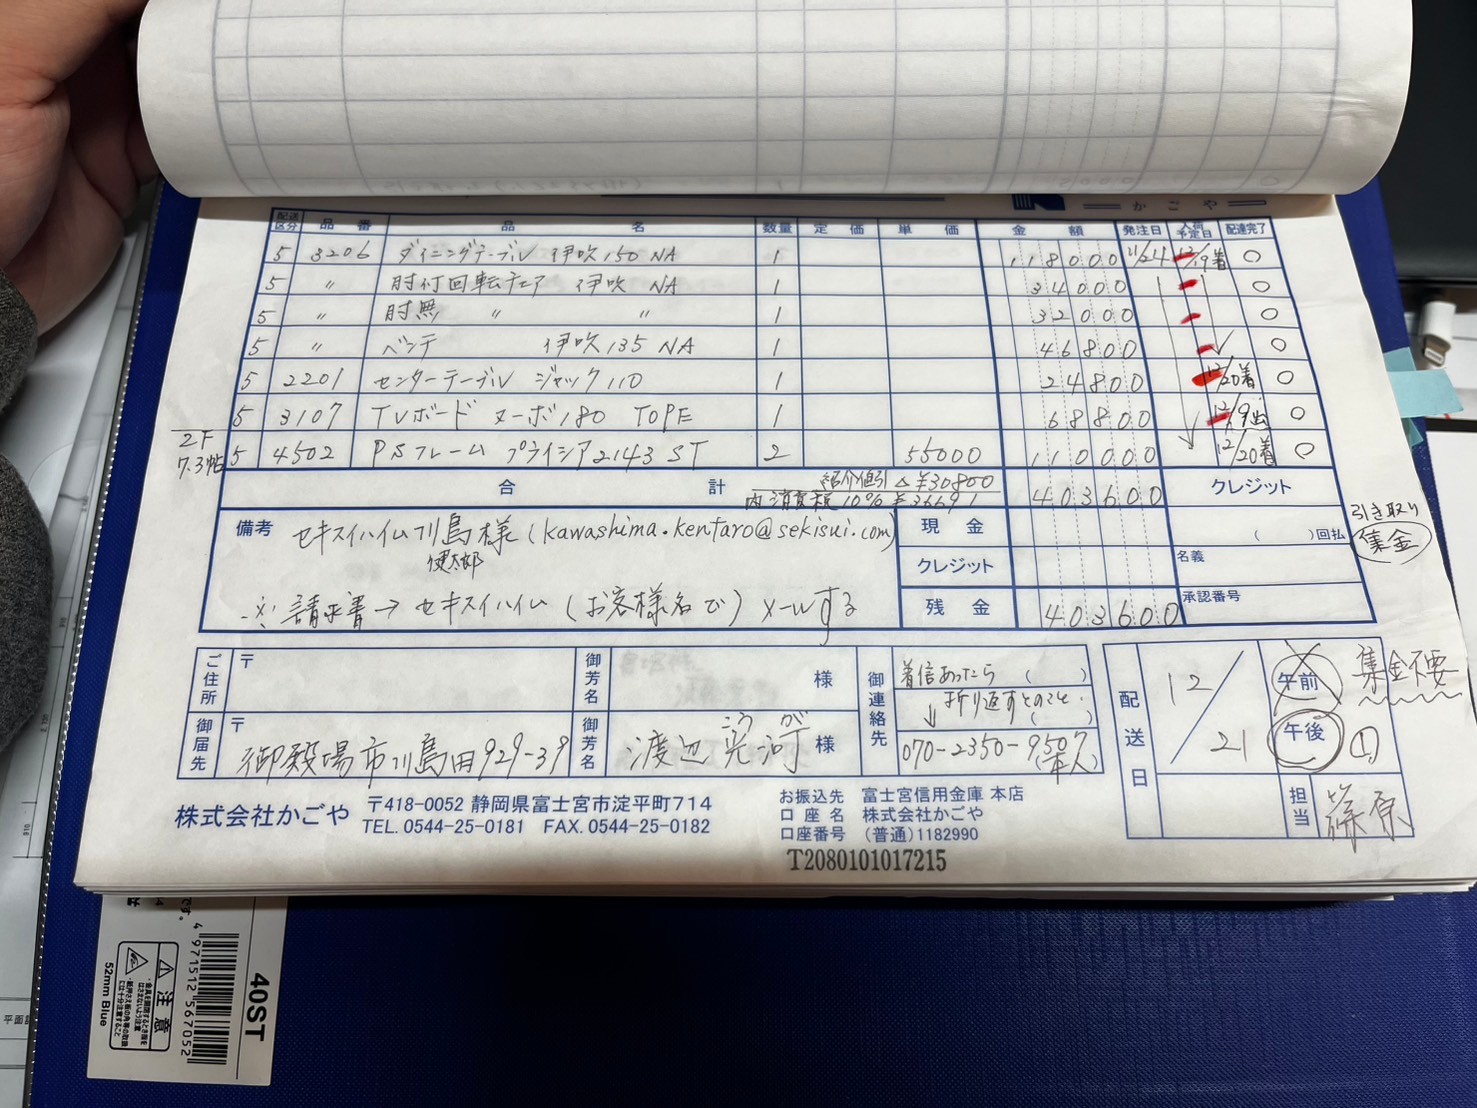 かごや
配送区分 品番 品名 数量 定価 単価 金額 発注日 入荷予定日 配達完了
5 3206 ダイニングテーブル 伊吹150 NA 1 118000 11/24 12/19着 ○
5 〃 肘付回転チェア 伊吹 NA 1 34000 ○
5 〃 肘無 〃 〃 1 32000 ○
5 〃 ベンチ 伊吹135 NA 1 46800 ○
5 2201 センターテーブル ジャック110 1 24800 12/20着 ○
5 3107 TVボード ヌーボ180 TOPE 1 68800 12/9出 ○
2F 7.3帖 5 4502 PSフレーム プライシア2143 ST 2 55000 110000 12/20着 ○
合計 紹介値引△¥30800 403600 クレジット
内消費税10% ¥36691
引き取り
集金
備考 セキスイハイム川島様(kawashima.kentaro@sekisui.com)
健太郎
現金 ( )回払
クレジット 名義
※請求書→セキスイハイム(お客様名で)メールする
残金 403600 承認番号
ご住所 〒 御芳名 様 御連絡先 着信あったら ( )
折り返すとのこと. ( )
御届先 〒 御殿場市川島田929-39 御芳名 渡辺 完河 様 070-2350-9507
こうが
本人
配送日 12/21 午前 午後 ① 集金不要
担当 篠原
株式会社かごや 〒418-0052 静岡県富士宮市淀平町714
TEL. 0544-25-0181 FAX. 0544-25-0182
お振込先 富士宮信用金庫 本店
口座名 株式会社かごや
口座番号 (普通)1182990
T2080101017215
40ST
4 971512 567052
注意
52mm Blue